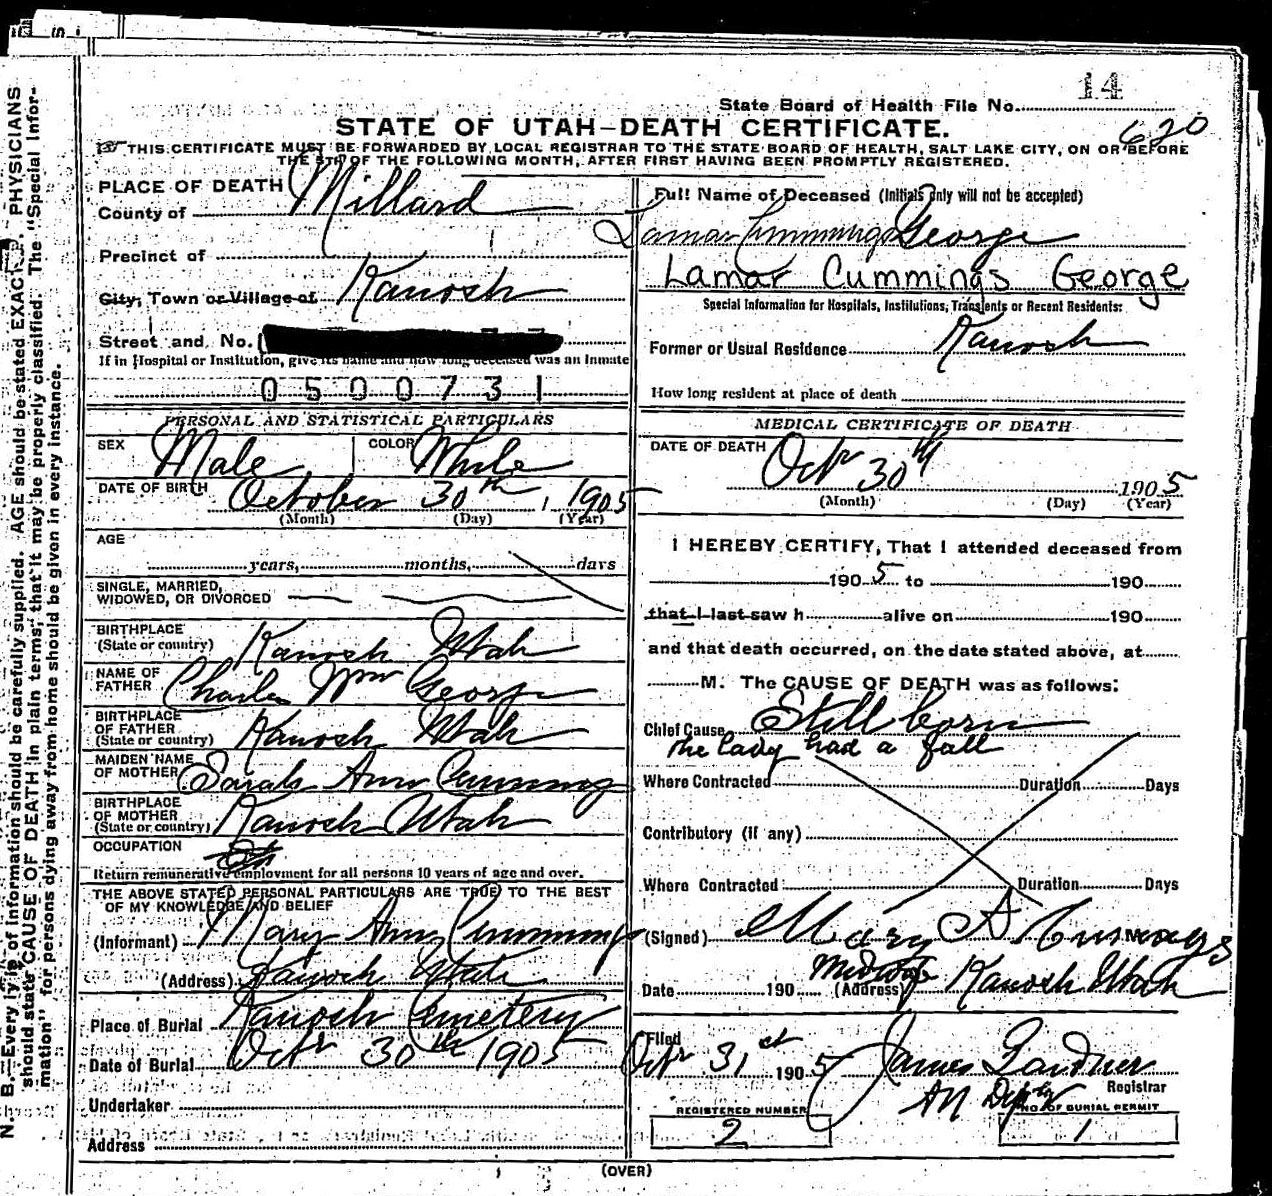 14
State Board of Health File No.
STATE OF UTAH—DEATH CERTIFICATE.
620
THIS CERTIFICATE MUST BE FORWARDED BY LOCAL REGISTRAR TO THE STATE BOARD OF HEALTH, SALT LAKE CITY, ON OR BEFORE
THE 5TH OF THE FOLLOWING MONTH, AFTER FIRST HAVING BEEN PROMPTLY REGISTERED.
PLACE OF DEATH
County of Millard
Precinct of
City, Town or Village of Kanosh
Street and No. (
If in Hospital or Institution, give its name and how long deceased was an Inmate
0500731
PERSONAL AND STATISTICAL PARTICULARS
SEX Male COLOR White
DATE OF BIRTH October 30th, 1905
(Month) (Day) (Year)
AGE
years, months, days
SINGLE, MARRIED,
WIDOWED, OR DIVORCED
BIRTHPLACE
(State or country) Kanosh Utah
NAME OF
FATHER Charles Wm George
BIRTHPLACE
OF FATHER
(State or country) Kanosh Utah
MAIDEN NAME
OF MOTHER Sarah Ann Cummings
BIRTHPLACE
OF MOTHER
(State or country) Kanosh Utah
OCCUPATION
Return remunerative employment for all persons 10 years of age and over.
THE ABOVE STATED PERSONAL PARTICULARS ARE TRUE TO THE BEST
OF MY KNOWLEDGE AND BELIEF
(Informant) Mary Ann Cummings
(Address) Kanosh Utah
Place of Burial Kanosh Cemetery
Date of Burial Octr 30th 1905
Undertaker
Address
Full Name of Deceased (Initials only will not be accepted)
Lamar Cummings George
Lamar Cummings George
Special Information for Hospitals, Institutions, Transients or Recent Residents:
Former or Usual Residence Kanosh
How long resident at place of death
MEDICAL CERTIFICATE OF DEATH
DATE OF DEATH Octr 30th 1905
(Month) (Day) (Year)
I HEREBY CERTIFY, That I attended deceased from
1905 to 190
that I last saw h alive on 190
and that death occurred, on the date stated above, at
M. The CAUSE OF DEATH was as follows:
Chief Cause Still born
the lady had a fall
Where Contracted Duration Days
Contributory (if any)
Where Contracted Duration Days
(Signed) Mary A Cummings
Midwife
Date 190 (Address) Kanosh Utah
Filed
Octr 31st 1905 James Gardner
Registrar
REGISTERED NUMBER
2
NO. OF BURIAL PERMIT
1
(OVER)
N. B.—Every item of information should be carefully supplied. AGE should be stated EXACTLY. PHYSICIANS
should state CAUSE OF DEATH in plain terms, that it may be properly classified. The "Special Infor-
mation" for persons dying away from home should be given in every instance.